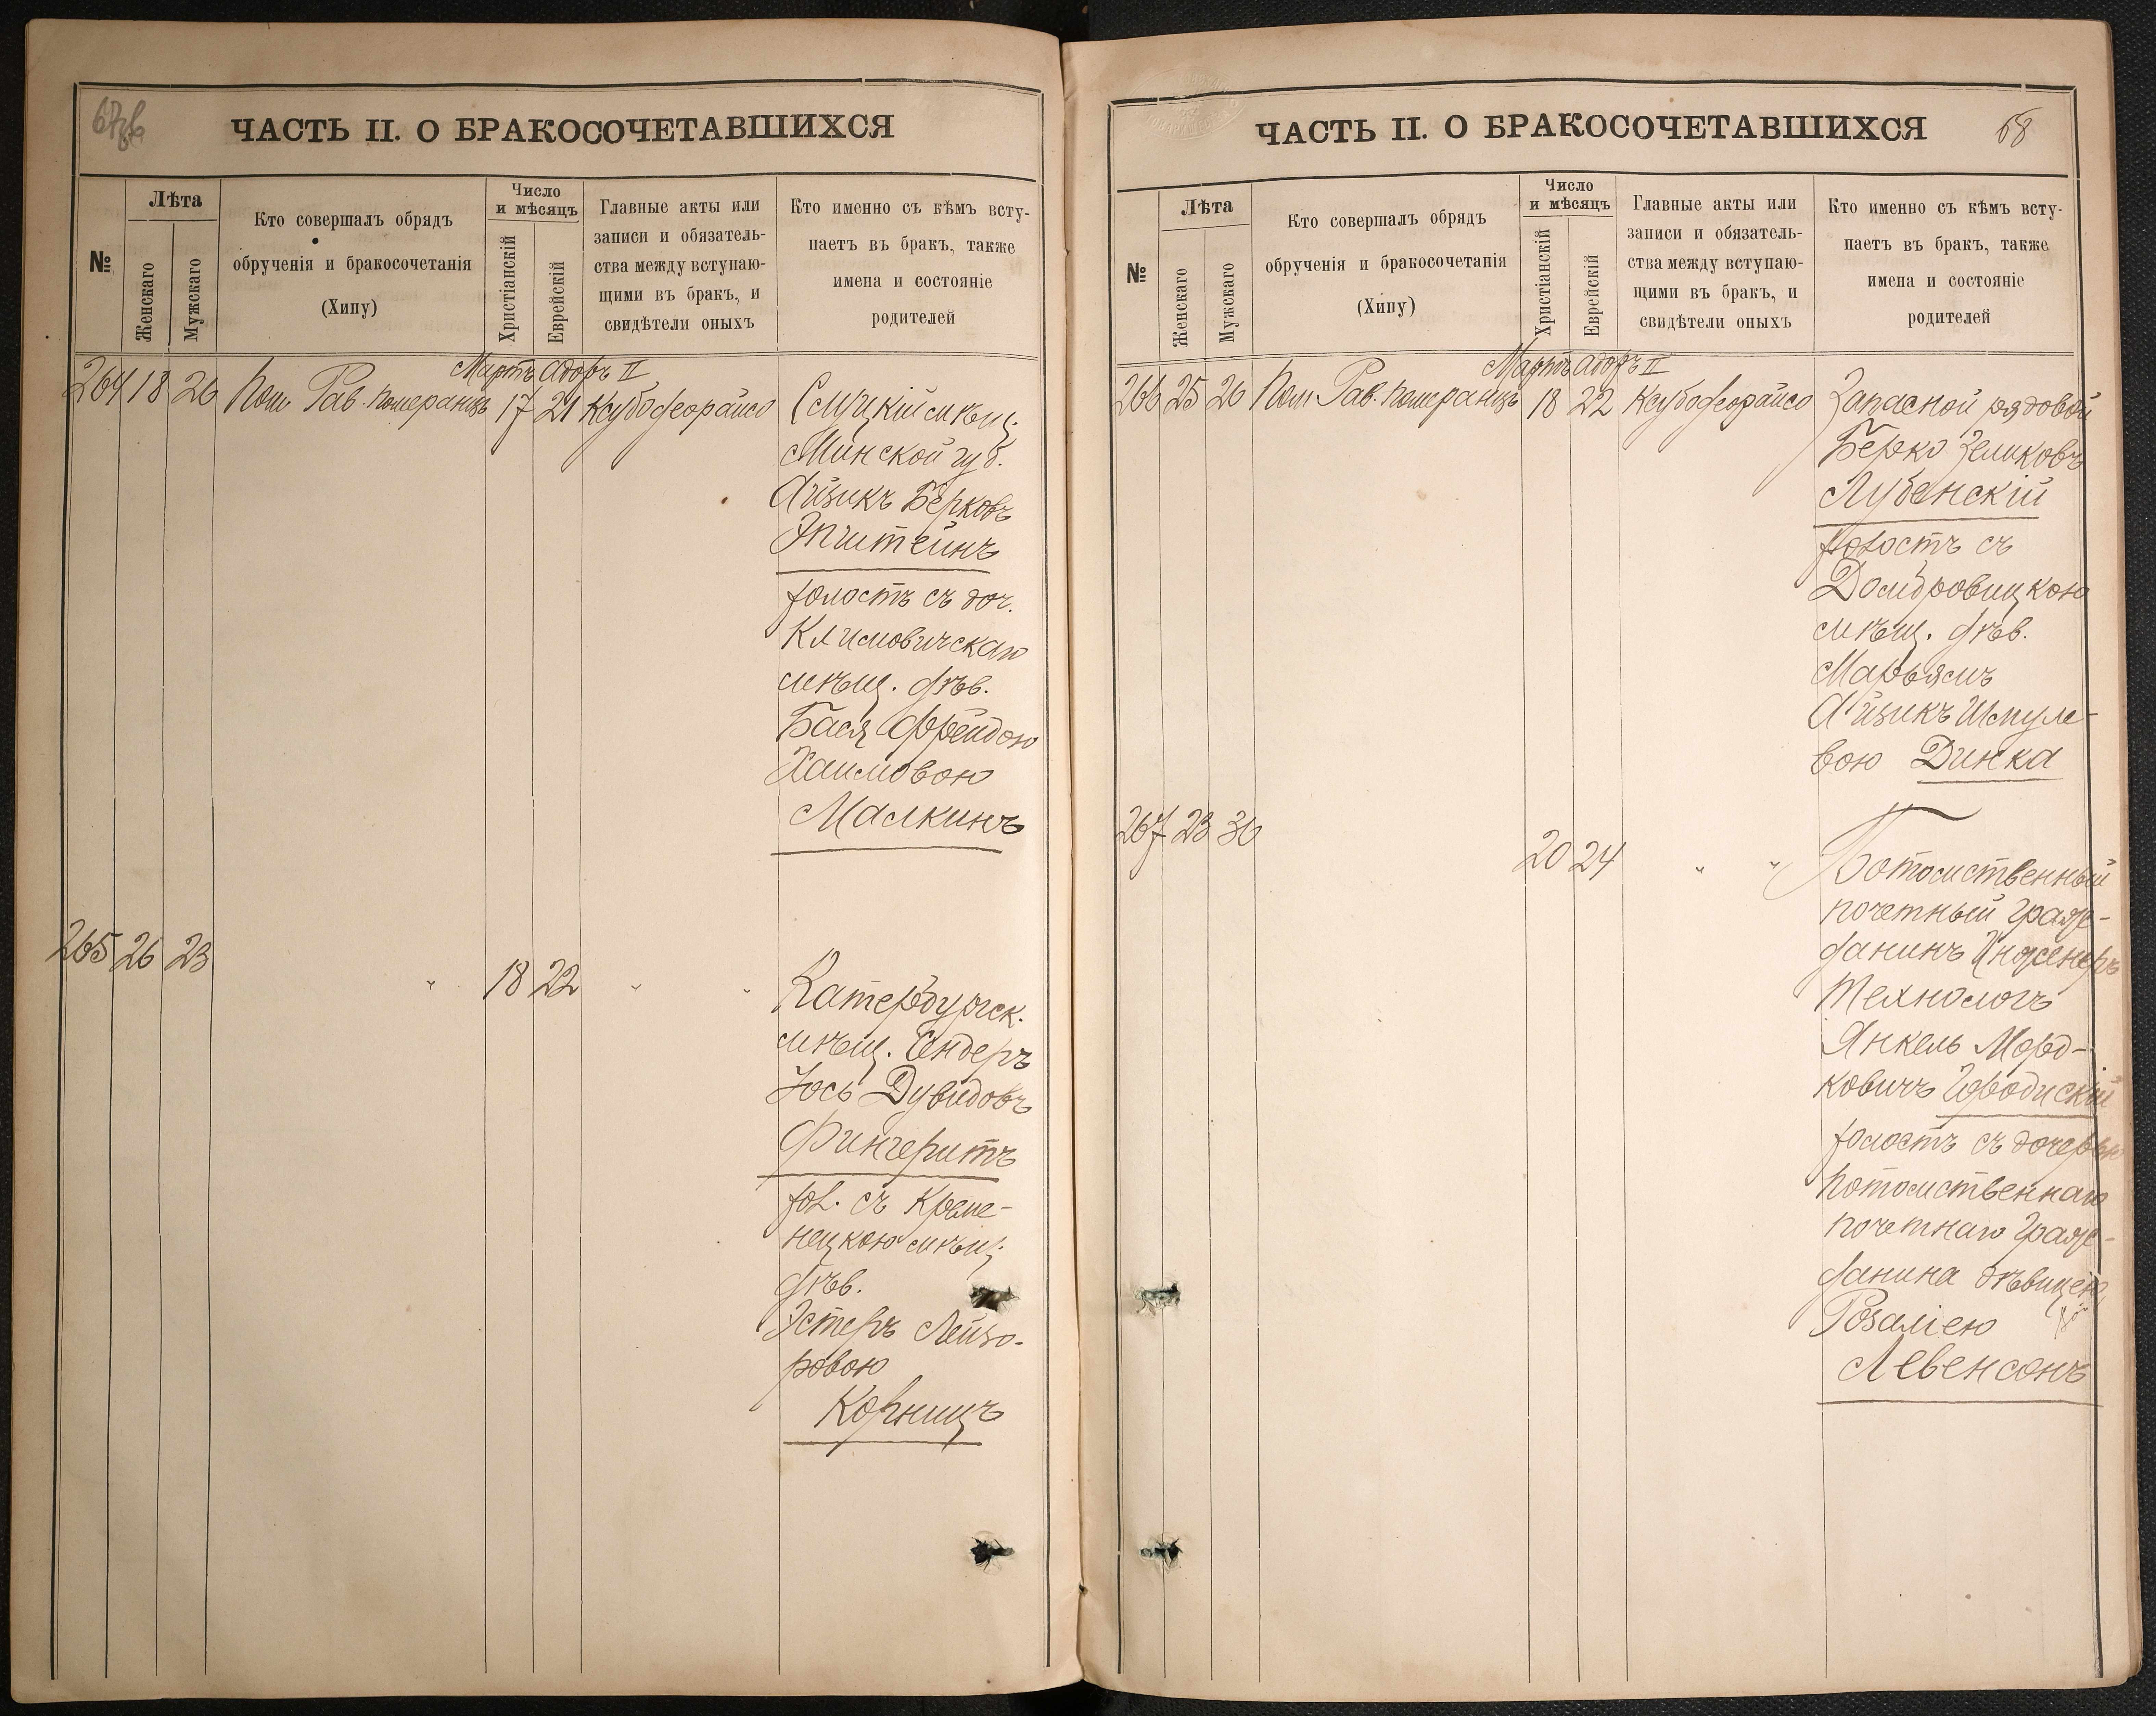 67об
ЧАСТЬ II. О БРАКОСОЧЕТАВШИХСЯ
№
Лѣта
Женскаго
Мужскаго
Кто совершалъ обрядъ
обрученія и бракосочетанія
(Хипу)
Число
и мѣсяцъ
Христіанскій
Еврейскій
Главные акты или
записи и обязатель-
ства между вступаю-
щими въ бракъ, и
свидѣтели оныхъ
Кто именно съ кѣмъ всту-
паетъ въ бракъ, также
имена и состояніе
родителей
Мартъ Адоръ II
264 18 26 Пом Рав. Померанцъ 17 21 Ксубо деорайсо Слуцкій мѣщ.
Минской губ.
Айзикъ Берковъ
Эпштейнъ
холостъ съ доч.
Климовичскаго
мѣщ. дѣв.
Бася Фрейдою
Хаимовою
Малкинъ
265 26 23 " 18 22 " " Катербургск.
мѣщ. Сендеръ
Іось Дувидовъ
Фингерить
хол. съ Креме-
нецкою мѣщ.
дѣв.
Эстеръ Лейзо-
ровою
Корницъ
ЧАСТЬ II. О БРАКОСОЧЕТАВШИХСЯ
68
№
Лѣта
Женскаго
Мужскаго
Кто совершалъ обрядъ
обрученія и бракосочетанія
(Хипу)
Число
и мѣсяцъ
Христіанскій
Еврейскій
Главные акты или
записи и обязатель-
ства между вступаю-
щими въ бракъ, и
свидѣтели оныхъ
Кто именно съ кѣмъ всту-
паетъ въ бракъ, также
имена и состояніе
родителей
Мартъ Адоръ II
266 25 26 Пом Рав. Померанцъ 18 22 Ксубо деорайсо Запасной рядовой
Берко Зеликовъ
Лубенскій
холостъ съ
Домбровицкою
мѣщ. дѣв.
Марьямъ
Айзикъ Шмуле-
вою Динка
267 23 30 20 24 " " Потомственный
почетный граж-
данинъ Инженеръ
Технологъ
Янкель Морд-
ковичъ Городискій
холостъ съ дочерью
потомственнаго
почетнаго граж-
данина дѣвицею
Розаліею
Левенсонъ